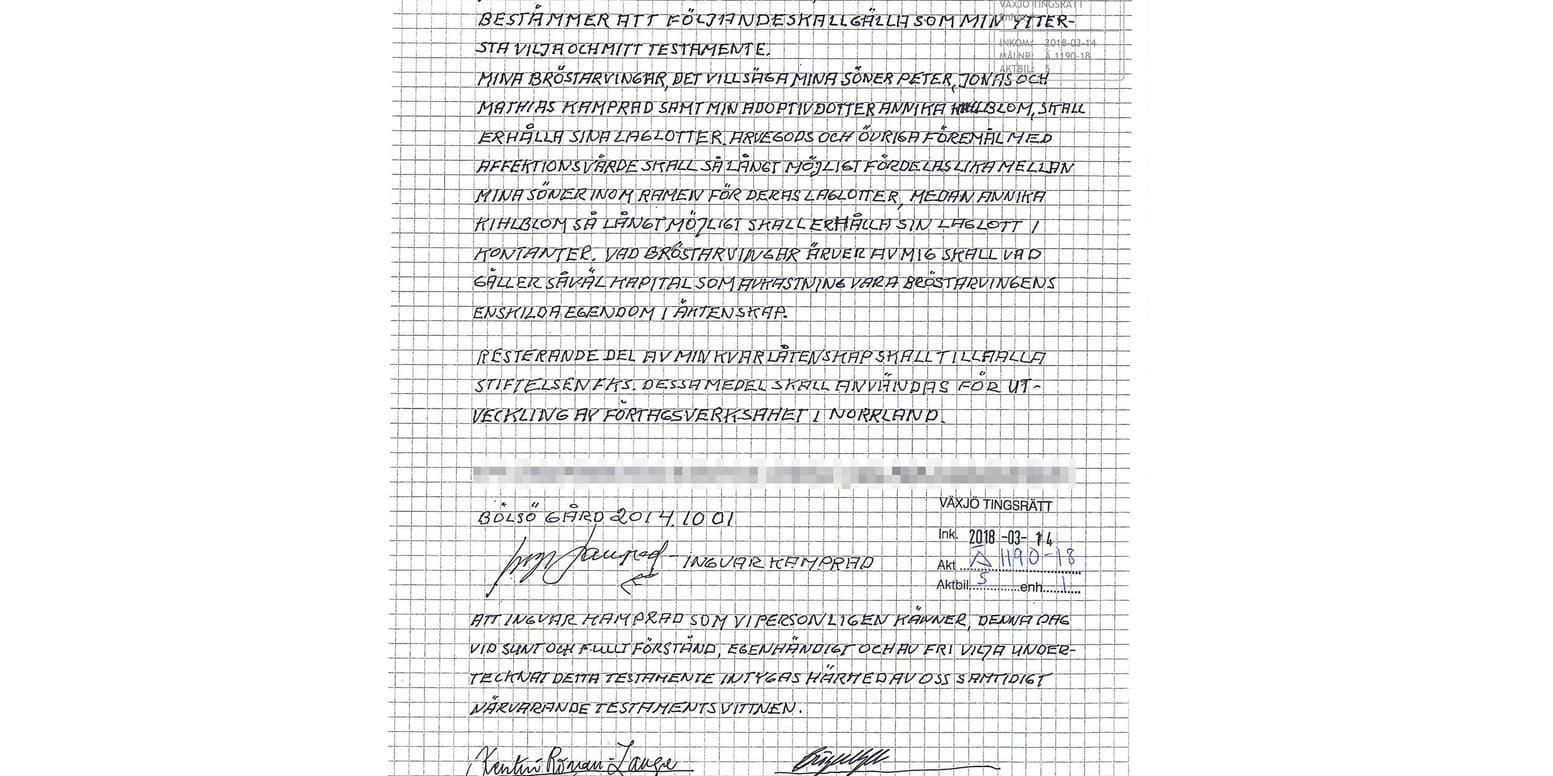 VÄXJÖ TINGSRÄTT
BESTÄMMER ATT FÖLJANDE SKALL GÄLLA SOM MIN YTTER-
INKOM: 2018-03-14
STA VILJA OCH MITT TESTAMENTE.
MÅLNR: Ä 1190-18
AKTBIL: 5
MINA BRÖSTARVINGAR, DET VILL SÄGA MINA SÖNER PETER, JONAS OCH
MATHIAS KAMPRAD SAMT MIN ADOPTIVDOTTER ANNIKA KIHLBLOM, SKALL
ERHÅLLA SINA LAGLOTTER. ARVEGODS OCH ÖVRIGA FÖREMÅL MED
AFFEKTIONSVÄRDE SKALL SÅ LÅNGT MÖJLIGT FÖRDELAS LIKA MELLAN
MINA SÖNER INOM RAMEN FÖR DERAS LAGLOTTER, MEDAN ANNIKA
KIHLBLOM SÅ LÅNGT MÖJLIGT SKALL ERHÅLLA SIN LAGLOTT I
KONTANTER. VAD BRÖSTARVINGAR ÄRVER AV MIG SKALL VAD
GÄLLER SÅVÄL KAPITAL SOM AVKASTNING VARA BRÖSTARVINGENS
ENSKILDA EGENDOM I ÄKTENSKAP.
RESTERANDE DEL AV MIN KVARLÅTENSKAP SKALL TILLFALLA
STIFTELSEN FKS. DESSA MEDEL SKALL ANVÄNDAS FÖR UT-
VECKLING AV FÖRTAGSVERKSAHET I NORRLAND.
BÖLSÖ GÅRD 2014.10 01
VÄXJÖ TINGSRÄTT
Ink. 2018 -03- 14
Akt Ä 1190-18
Aktbil. 5 enh. 1
INGVAR KAMPRAD
ATT INGVAR KAMPRAD SOM VI PERSONLIGEN KÄNNER, DENNA DAG
VID SUNT OCH FULLT FÖRSTÅND, EGENHÄNDIGT OCH AV FRI VILJA UNDER-
TECKNAT DETTA TESTAMENTE INTYGAS HÄRMED AV OSS SAMTIDIGT
NÄRVARANDE TESTAMENTSVITTNEN.